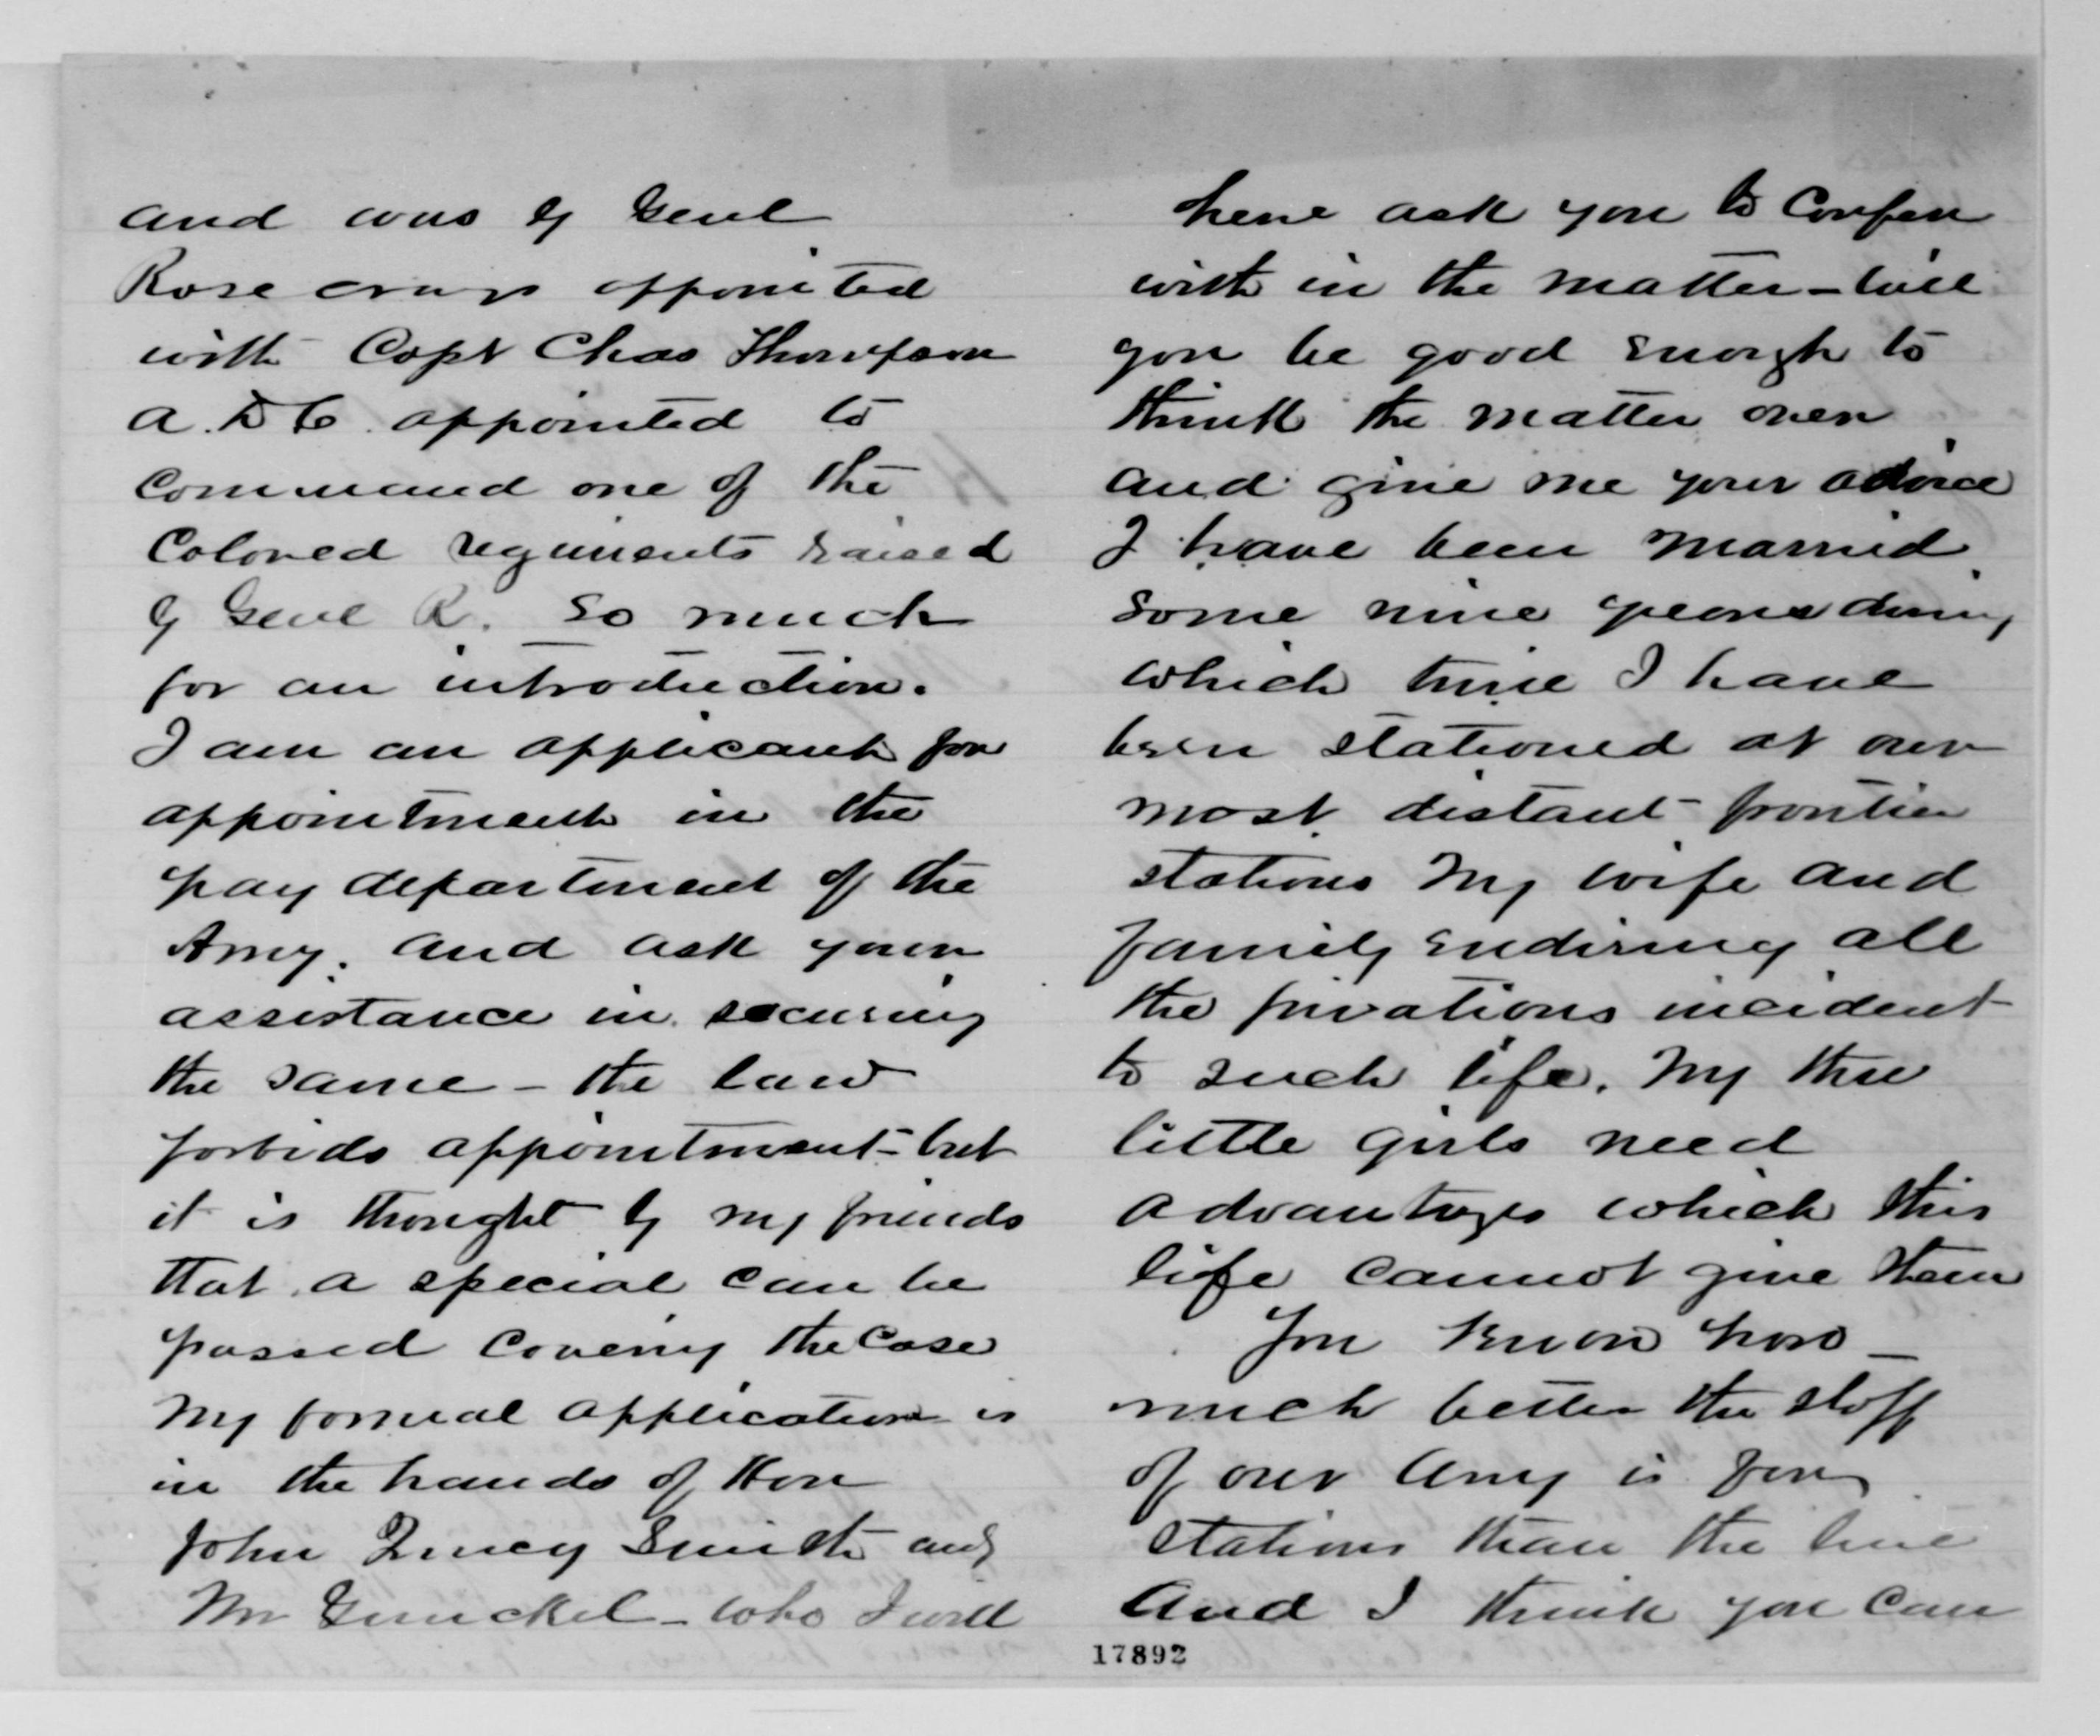 and was by Genl
Rosecrans appointed
with Capt Chas Thompson
A. D C. appointed to
command one of the
Colored regiments raised
by Genl R. So much
for an introduction.
I am an applicant for
appointment in the
pay department of the
Army. and ask your
assistance in securing
the same - the law
forbids appointment - but
it is thought by my friends
that a special can be
passed covering the Case
My formal application is
in the hands of Hon
John Quincy Smith and
Mr Gunckel - who I will
here ask you to Confer
with in the matter - will
you be good enough to
think the matter over
and give me your advice
I have been married
some nine years during
which time I have
been stationed at our
most distant frontier
stations My wife and
family enduring all
the privations incident
to such life. My three
little girls need
advantages which this
life cannot give them
You know how
much better the staff
of our Army is for
stations than the line
And I think you can
17892